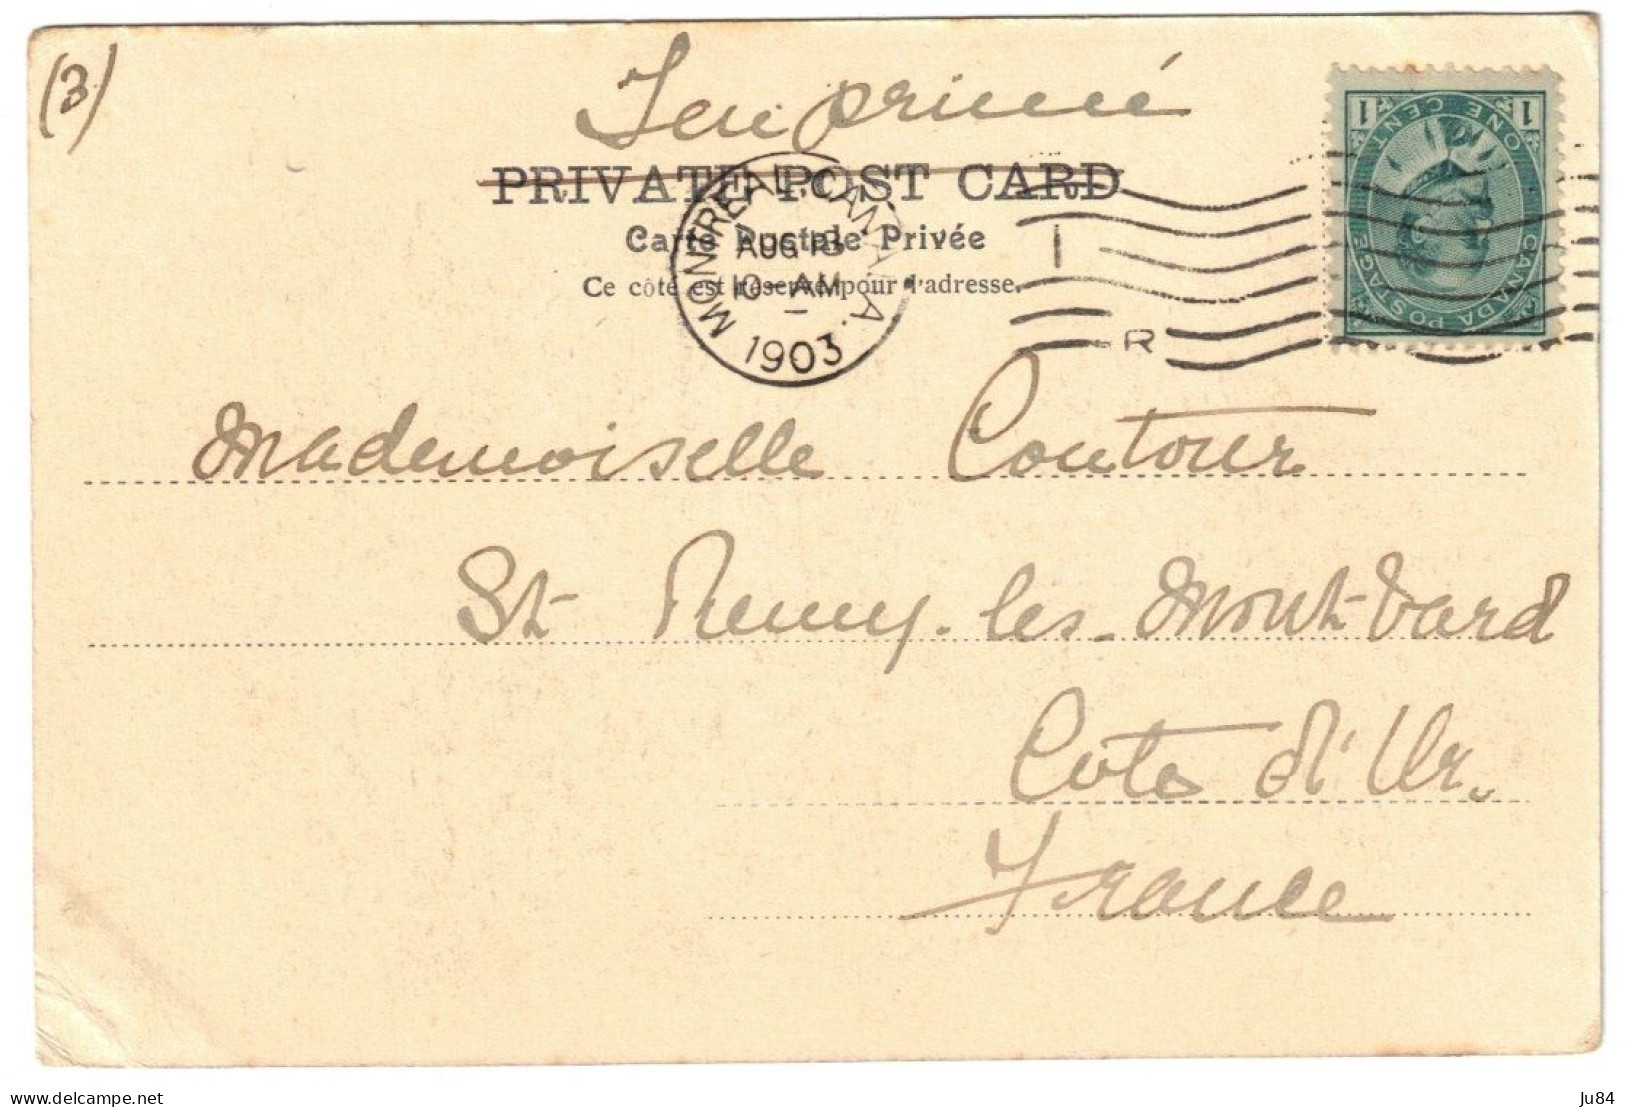 (3)
Imprimé
PRIVATE POST CARD
Carte Postale Privée
Ce côté est réservé pour l'adresse.
MONTREAL, CANADA.
AUG 13
10 - AM
1903
I
R
1 ONE CENT 1
CANADA POSTAGE
Mademoiselle Coutour
St Remy-les-Montbard
Cote d'Or.
France
delcampe.net
Ju84